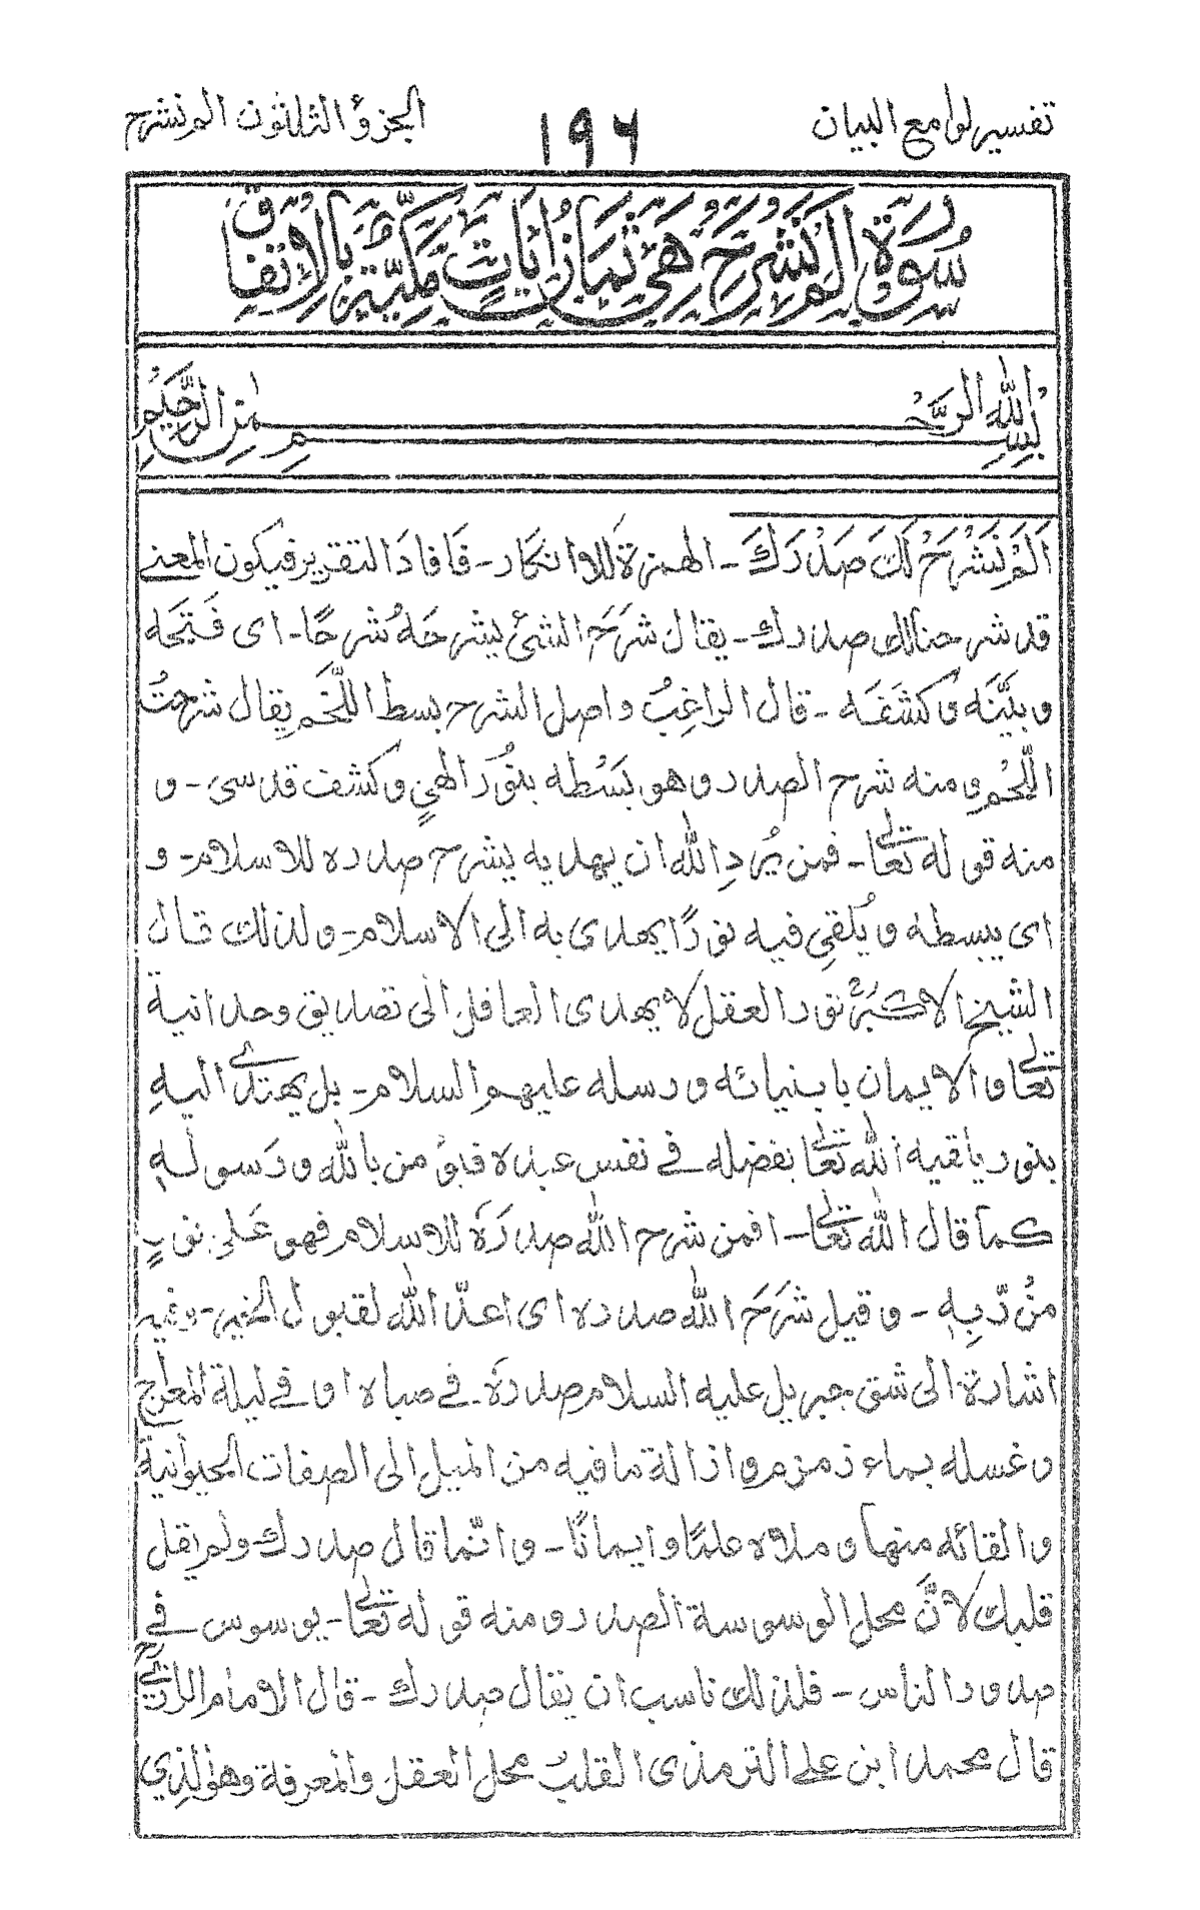 تفسير لوامع البيان ١٩٦ الجزؤ الثلاثون الم نشرح
سُوۡرَةُ اَلَمۡ نَشۡرَحۡ هِيَ ثَمَانُ اٰيَاتٍ مَكِّيَّةٌ بِالۡاِتِّفَاقِ
بِسۡمِ اللّٰهِ الرَّحۡمٰنِ الرَّحِيۡمِ
اَلَمۡ نَشۡرَحۡ لَكَ صَدۡرَكَ - الهمزة للانكار - فَافادَ التقرير فيكون المعنے
قد شرحنا لك صدرك - يقال شَرَحَ الشئ يشرحَهُ شرحًا - اى فَتَحَه
و بيَّنَه و كَشَفَه - قال الراغبُ واصل الشرح بسط اللَّحَم يقال شرحتُ
اللَّحۡم و منه شرح الصدر و هو بَسۡطه بنُورٍ الهيٍ و كشف قدسى - و
منه قوله تعالےٰ - فمن يُّردِ الله ان يهديه يشرح صدره للاسلام - و
اى يبسطه و يُلقى فيه نورًا يهدى به الى الاسلام - ولذلك قال
الشيخ الاكبرُ نور العقل لا يهدى العاقل الى تصديق وحدانية
تعالےٰ و الايمان بانبيائه و رسله عليهم السلام - بل يهتدے اليهِ
بنور ياقيه الله تعالےٰ بفضله فے نفس عبده فيؤمن بالله و رَسولهٖ
كما قال الله تعالےٰ - افمن شرح الله صدرَه للاسلام فهو عَلىٰ نورٍ
مِّنۡ رَّبِهٖ - و قيل شَرَحَ الله صدره اى اعدّ الله لقبول الخير - وفيه
اشارة الى شق جبريل عليه السلام صدرَه - فے صباه او فے ليلة المعراج
و غسله بماء زمزم و ازالة ما فيه من الميل الى الصفات الحيوانية
و القائه منها و ملاه علمًا و ايمانًا - و انّما قال صدرك و لم يقل
قلبك لانَّ محل الوسوسة الصدر و منه قوله تعالےٰ - يوسوس فے
صدور الناس - فلذلك ناسب ان يقال صدرك - قال الامام الرازىؒ
قال محمد ابن علے الترمذى القلبُ محل العقل والمعرفة وهو الذى